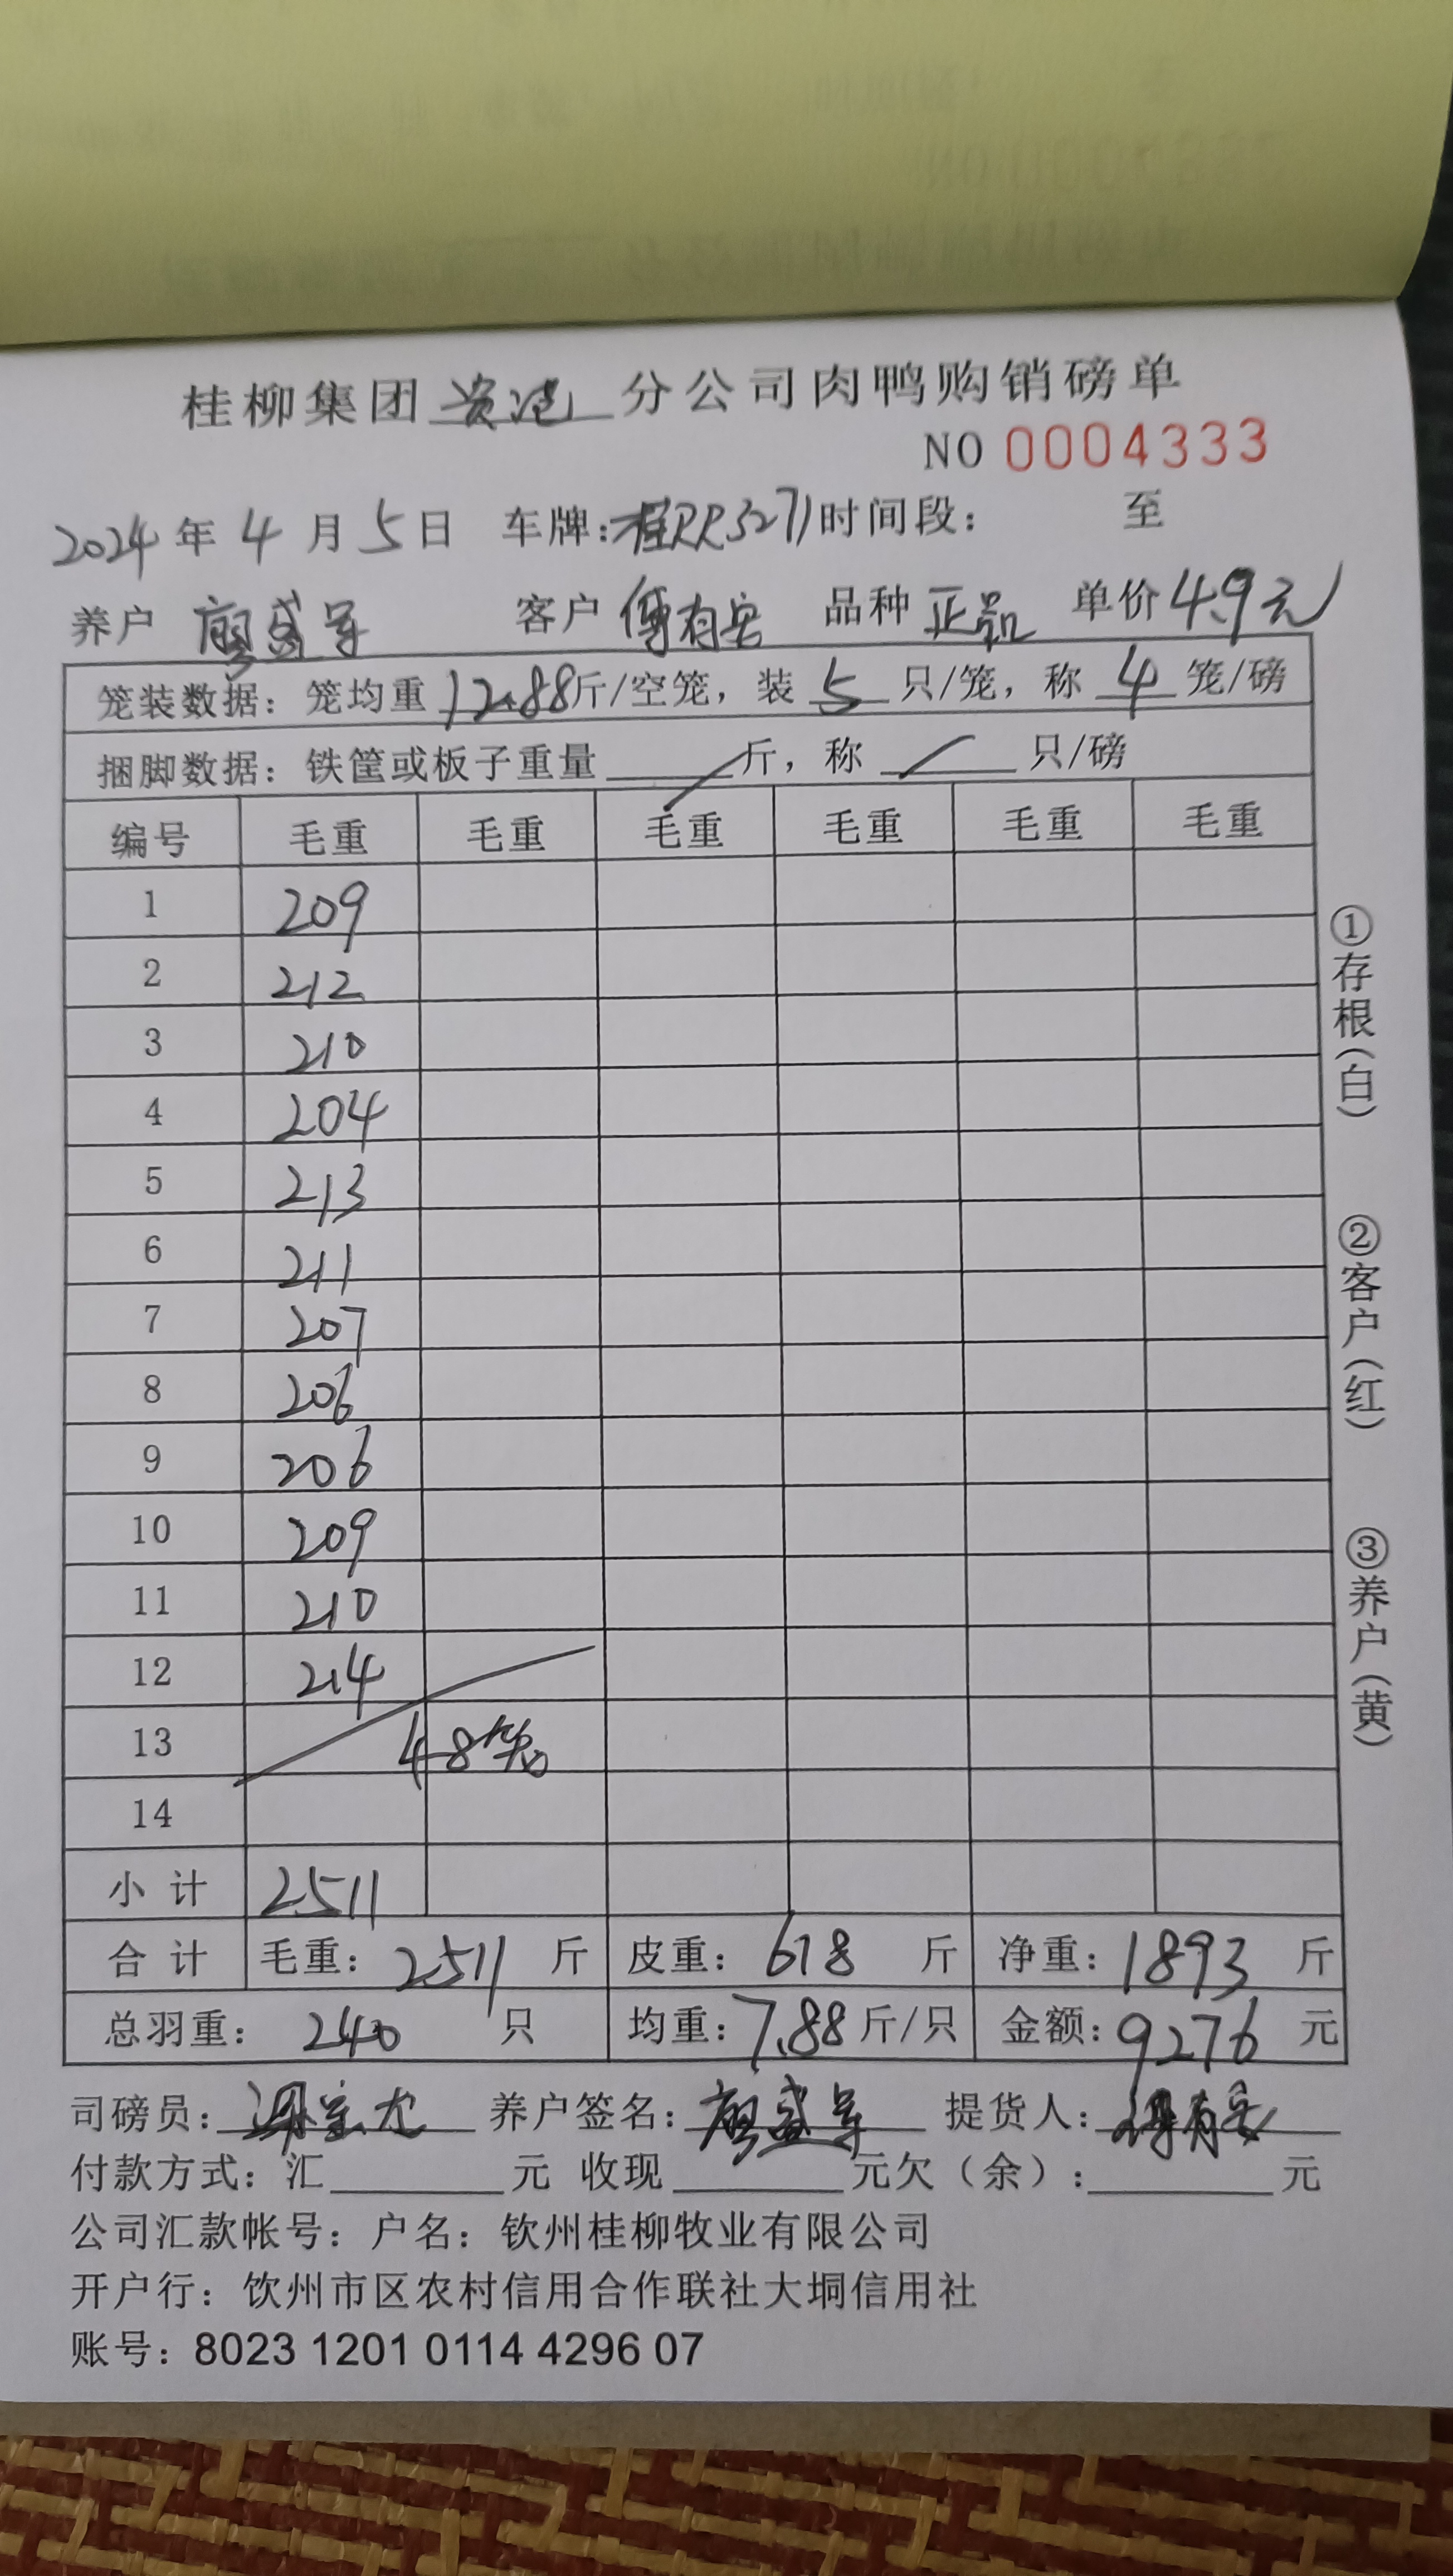 桂柳集团贵港分公司肉鸭购销磅单
NO 0004333
2024年4月5日 车牌:桂RR3271时间段: 至
养户 廖盛军 客户 傅有安 品种 正品 单价4.9元
笼装数据:笼均重 12.88斤/空笼,装 5 只/笼,称 4 笼/磅
捆脚数据:铁筐或板子重量 / 斤,称 / 只/磅
编号 毛重 毛重 毛重 毛重 毛重 毛重
1 209
2 212
3 210
4 204
5 213
6 211
7 207
8 206
9 206
10 209
11 210
12 214
13 48笼
14
小计 2511
合计 毛重:2511 斤 皮重:618 斤 净重:1893 斤
总羽重:240 只 均重:7.88斤/只 金额:9276 元
司磅员: 养户签名:廖盛军 提货人:傅有安
付款方式:汇 元 收现 元欠(余): 元
公司汇款帐号:户名:钦州桂柳牧业有限公司
开户行:钦州市区农村信用合作联社大垌信用社
账号:8023 1201 0114 4296 07
①存根(白)
②客户(红)
③养户(黄)